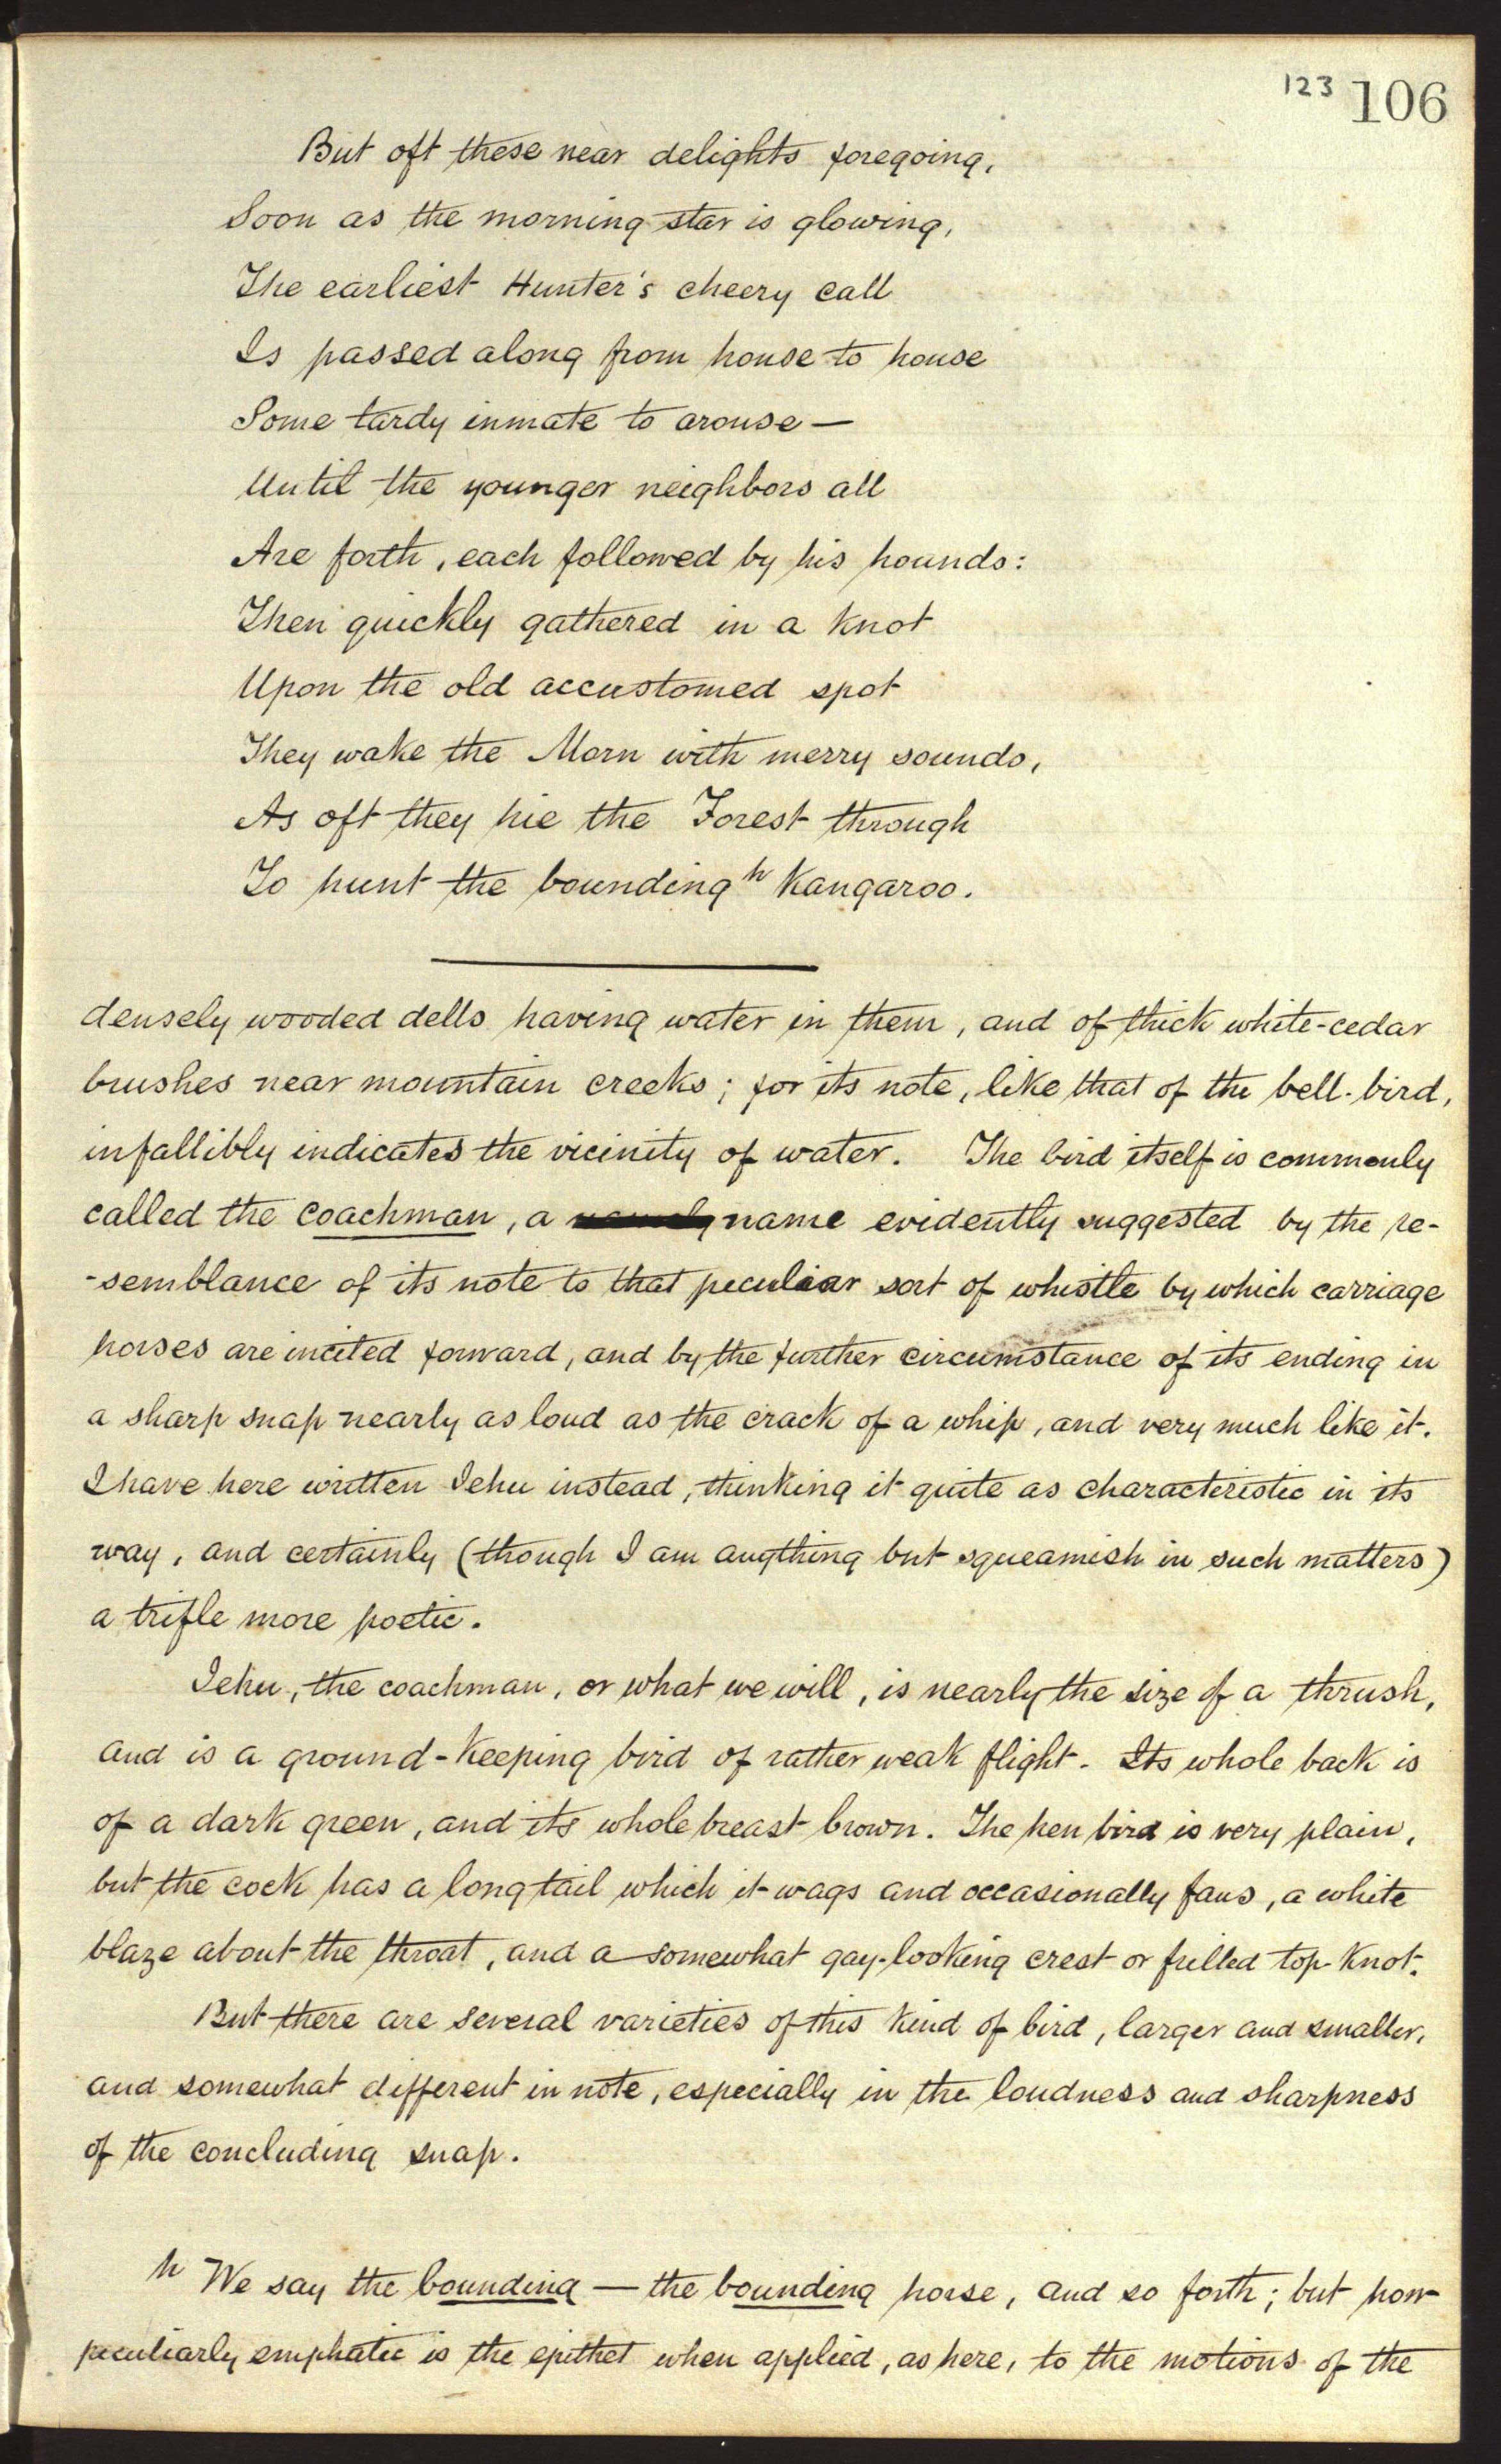 123 106
But oft these near delights foregoing,
Soon as the morning star is glowing,
The earliest Hunter's cheery call
Is passed along from house to house
Some tardy inmate to arouse —
Until the younger neighbors all
Are forth, each followed by his hounds:
Then quickly gathered in a knot
Upon the old accustomed spot
They wake the Morn with merry sounds,
As oft they hie the Forest through
To hunt the bounding h Kangaroo.
densely wooded dells having water in them, and of thick white-cedar
brushes near mountain creeks; for its note, like that of the bell-bird,
infallibly indicates the vicinity of water. The bird itself is commonly
called the coachman, a name evidently suggested by the re-
-semblance of its note to that peculiar sort of whistle by which carriage
horses are incited forward, and by the further circumstance of its ending in
a sharp snap nearly as loud as the crack of a whip, and very much like it.
I have here written Jehu instead, thinking it quite as characteristic in its
way, and certainly (though I am anything but squeamish in such matters)
a trifle more poetic.
Jehu, the coachman, or what we will, is nearly the size of a thrush,
and is a ground-keeping bird of rather weak flight. Its whole back is
of a dark green, and its whole breast brown. The hen bird is very plain,
but the cock has a long tail which it wags and occasionally fans, a white
blaze about the throat, and a somewhat gay-looking crest or frilled top-knot.
But there are several varieties of this kind of bird, larger and smaller,
and somewhat different in note, especially in the loudness and sharpness
of the concluding snap.
h We say the bounding — the bounding horse, and so forth; but how
peculiarly emphatic is the epithet when applied, as here, to the motions of the